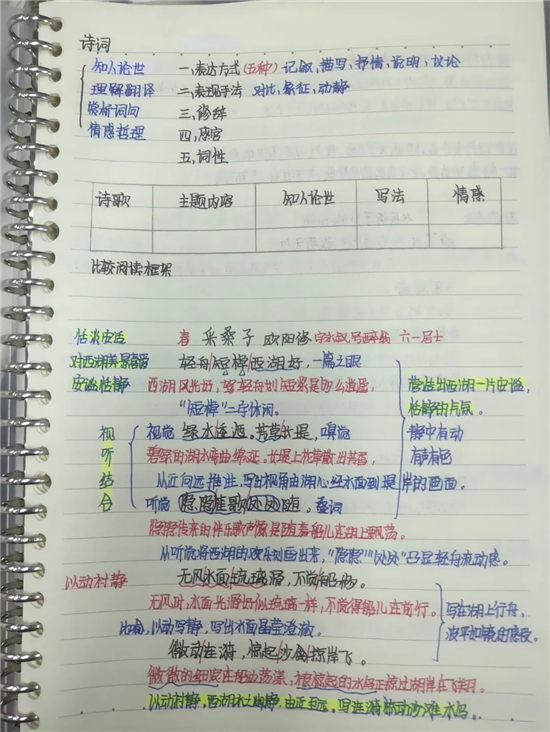 诗词
知人论世 一、表达方式(五种) 记叙,描写,抒情,说明,议论
理解翻译 二、表现手法 对比,象征,动静
赏析词句 三、修辞
情感哲理 四、感官
五、词性
诗歌 主题内容 知人论世 写法 情感
比较阅读框架
恬淡安适 春 采桑子 欧阳修 字永叔号醉翁 六一居士
对西湖美景喜爱 轻舟短棹西湖好,一篇之眼
安谧恬静 西湖风光好,驾轻舟划短桨是多么逍遥, 营造出西湖一片安谧,
"短棹"二字休闲。 恬静的氛围。
视 视觉 绿水逶迤。芳草长堤,嗅觉 静中有动
听 碧绿的湖水弯曲绵延。长堤上花草散出芳香, 有声有色
结 从近向远推进,写出视角由湖心经水面到堤岸的画面。
合 听觉 隐隐笙歌处处随。叠词
隐隐传来的伴乐歌声像是随着船儿在湖上飘荡。
从听觉将西湖的欢乐刻画出来,"隐隐""处处"凸显轻舟流动感。
以动衬静 无风水面琉璃滑,不觉船移。
无风时,水面光滑好似琉璃一样,不觉得船儿在前行。 写在湖上行舟,
比喻,以动写静,写出水面晶莹澄澈。 波平如镜的感受。
微动涟漪,惊起沙禽掠岸飞。
微微的细浪在船边荡漾,被惊起的水鸟正掠过湖岸在飞翔。
以动衬静,西湖水上幽静,由近至远,写涟漪惊动沙滩水鸟。